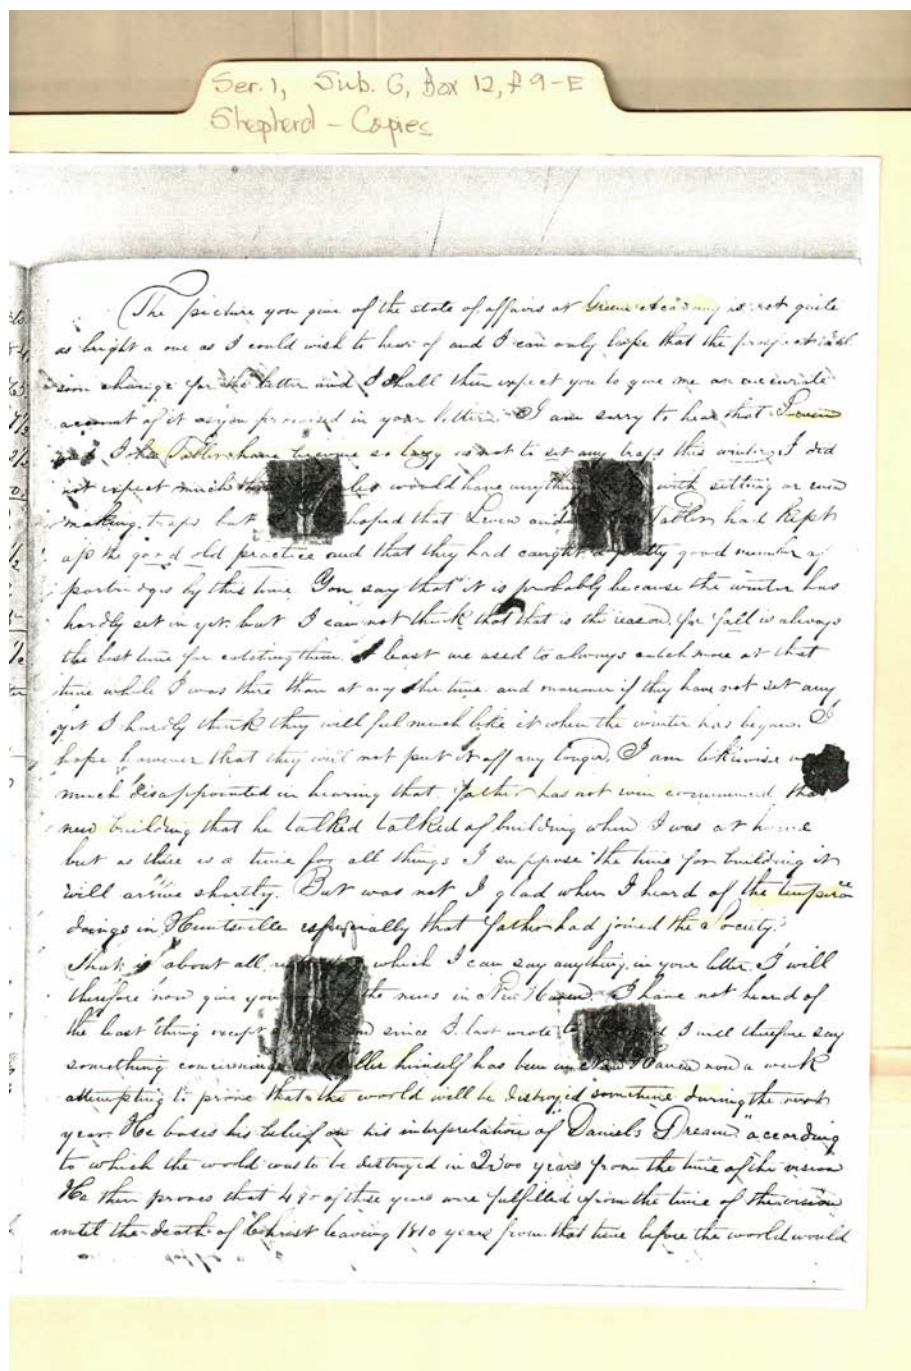 Ser. 1, Sub. G, Box 12, f 9-E
Shepherd - Copies
The picture you give of the state of affairs at Green Academy is not quite
as bright a one as I could wish to hear of and I can only hope that the prospect will
soon change for the better and I shall then expect you to give me an accurate
account of it as you promised in your letter. I am sorry to hear that
and John have become so lazy as not to set any traps this winter, I did
not expect much would have anything with setting or even
making traps but hoped that and had kept
up the good old practice and that they had caught a pretty good number of
partridges by this time. You say that it is probably because the winter has
hardly set in yet. but I can not think that that is the reason, for fall is always
the best time for catching them. At least we used to always catch more at that
time while I was there than at any other time. and moreover if they have not set any
yet I hardly think they will feel much like it when the winter has began. I
hope however that they will not put it off any longer. I am likewise
much disappointed in hearing that father has not even commenced that
new building that he talked talked of building when I was at home
but as there is a time for all things I suppose the time for building it
will arrive shortly. But was not I glad when I heard of the
doings in Huntsville especially that father had joined the Society.
That is about all which I can say anything in your letter. I will
therefore now give you the news in New Haven. I have not heard of
the least thing except since I last wrote to I will therefore say
something concerning himself has been in New Haven now a week
attempting to prove that the world will be destroyed sometime during the next
year. He bases his belief on his interpretation of "Daniels Dream" according
to which the world was to be destroyed in 2300 years from the time of the vision
He then proves that 490 of these years were fulfilled from the time of the vision
until the death of Christ leaving 1810 years from that time before the world would